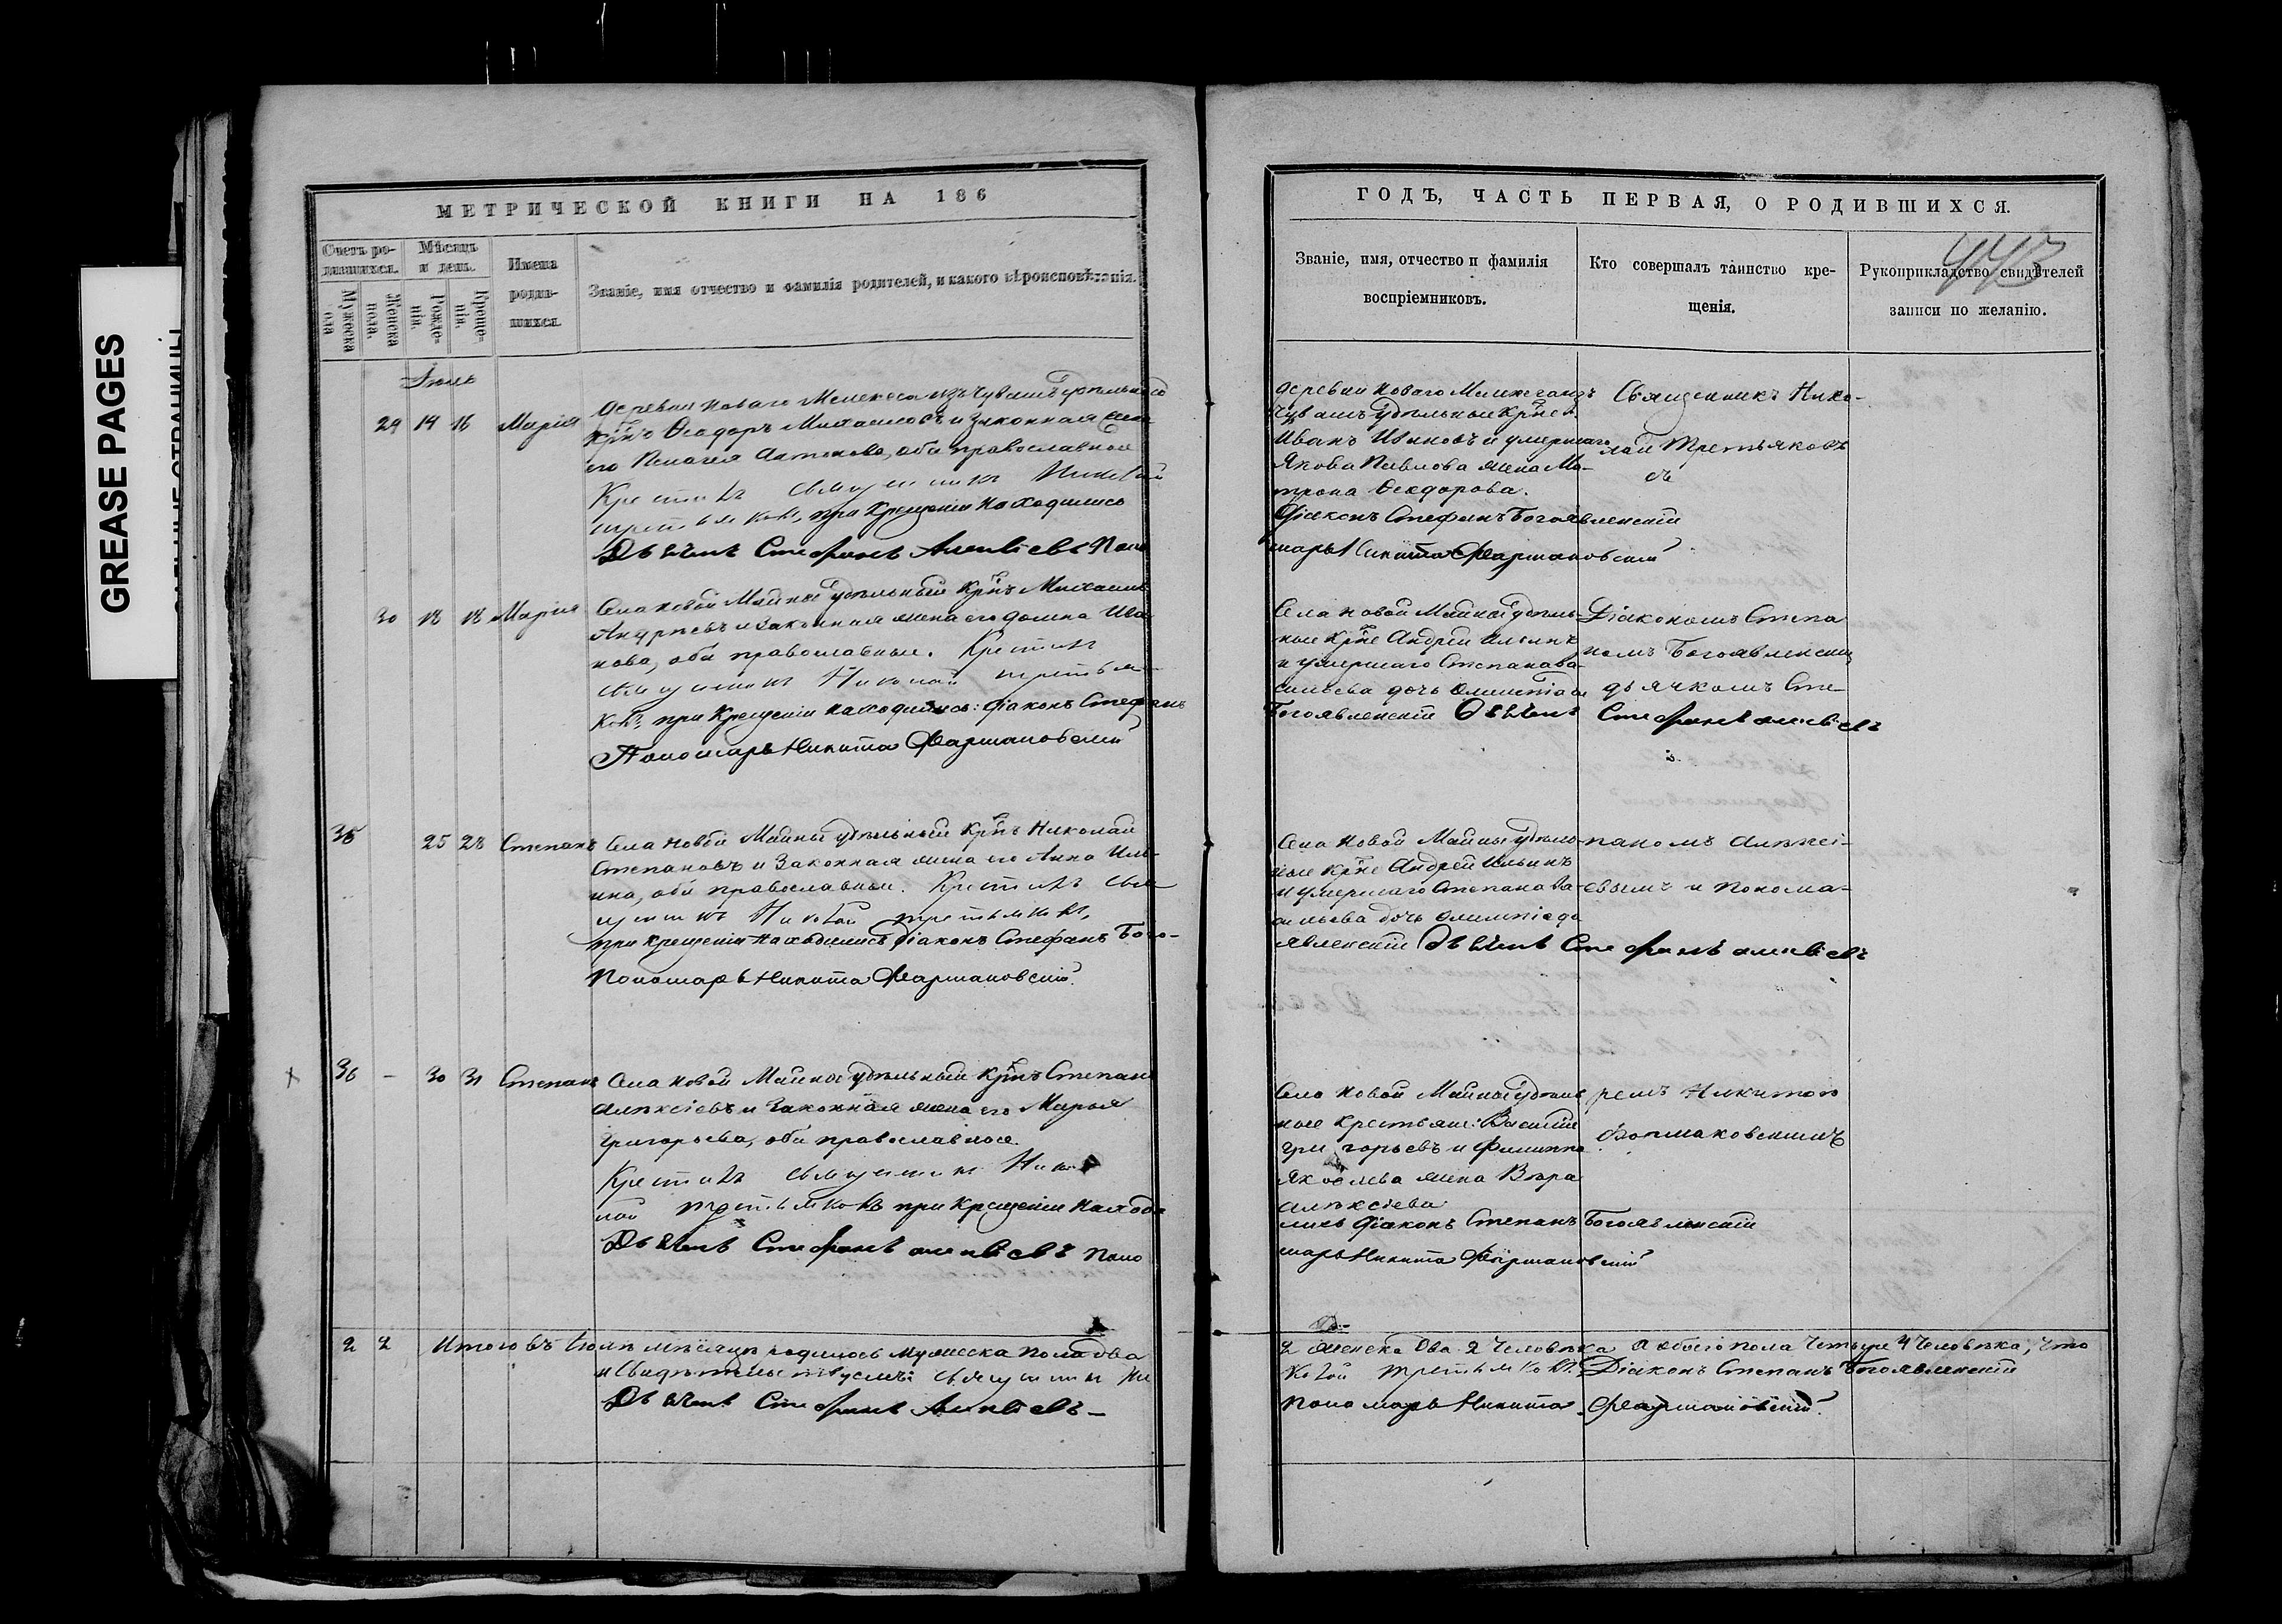 GREASE PAGES
МЕТРИЧЕСКОЙ КНИГИ НА 186
Счетъ ро-
дившихся.
Мѣсяцъ
и день.
Имена
родив-
шихся.
Званіе, имя отчество и фамилія родителей, и какого вѣроисповѣданія.
Мужеска
пола
Женска
пола.
Рожде-
нія.
Креще-
нія.
Іюль
29 14 16 Марія
деревни Новаго Мелекеса изъ Чувашъ удѣльный
крнъ Ѳеодоръ Михаиловъ и законная жена
его Пелагея Антонова, оба православные
Крестилъ священникъ Николай
Третьяковъ, при крещеніи находились
Дьячекъ Стефанъ Алексіевъ Поно
30 18 18 Марія
Села Новой Майны удѣльный крнъ Михаилъ
Андреевъ и законная жена его Домна Ива
нова, оба православные. Крестилъ
священникъ Николай Третья
ковъ, при крещеніи находились: діаконъ Стефанъ
Пономарь Никита Фармаковскій
35 25 28 Степанъ
Села Новой Майны удѣльный крнъ Николай
Степановъ и законная жена его Анна Иль-
ина, оба православные. Крестилъ свя
щенникъ Николай Третьяковъ,
при крещеніи находились діаконъ Стефанъ Бого-
Пономарь Никита Фармаковскій.
36 - 30 31 Степанъ
Села Новой Майны удѣльный крнъ Степанъ
Алексіевъ и законная жена его Марья
Григорьева, оба православные.
Крестилъ священникъ Нико
лай Третьяковъ при крещеніи находи
Дьячекъ Стефанъ Алексіевъ Поно
2 2 Итого въ Іюлѣ мѣсяцѣ родилось мужеска пола два
и свидѣтельствуемъ: священникъ Ни
Дьячекъ Стефанъ Алексіевъ -
ГОДЪ, ЧАСТЬ ПЕРВАЯ, О РОДИВШИХСЯ.
443
Званіе, имя, отчество и фамилія
воспріемниковъ.
Кто совершалъ таинство кре-
щенія.
Рукоприкладство свидѣтелей
записи по желанію.
деревни Новаго Мелекеса изъ
Чувашъ удѣльные крне
Иванъ Ивановъ и умершаго
Якова Павлова жена Ма-
трона Ѳеодорова.
Діаконъ Стефанъ Богоявленскій
марь Никита Фармаковскій
Священникъ Нико-
лай Третьяковъ
съ
Села Новой Майны удѣль-
ные крне Андрей Ильинъ
и умершаго Степана Ва-
сильева дочь Олимпіада
Богоявленскій Дьячекъ Стефанъ Алексіевъ
Діакономъ Степа
номъ Богоявленским
дьячкомъ Сте-
Села Новой Майны удѣль-
ные крне Андрей Ильинъ
и умершаго Степана Ва-
сильева дочь Олимпіада
явленскій Дьячекъ Стефанъ Алексіевъ
паномъ Алексі-
евымъ и понома-
Села Новой Майны удѣль
ные крестьяне: Василій
Григорьевъ и Филиппа
Яковлева жена Вѣра
Алексіева
лись діаконъ Степанъ Богоявленскій
марь Никита Фармаковскій
ремъ Никитою
Фармаковскимъ
2 женска два 2 человѣка а обоего пола четыре 4 человѣка, что
колай Третьяковъ. Діаконъ Степанъ Богоявленскій
Пономарь Никита Фармаковскій.